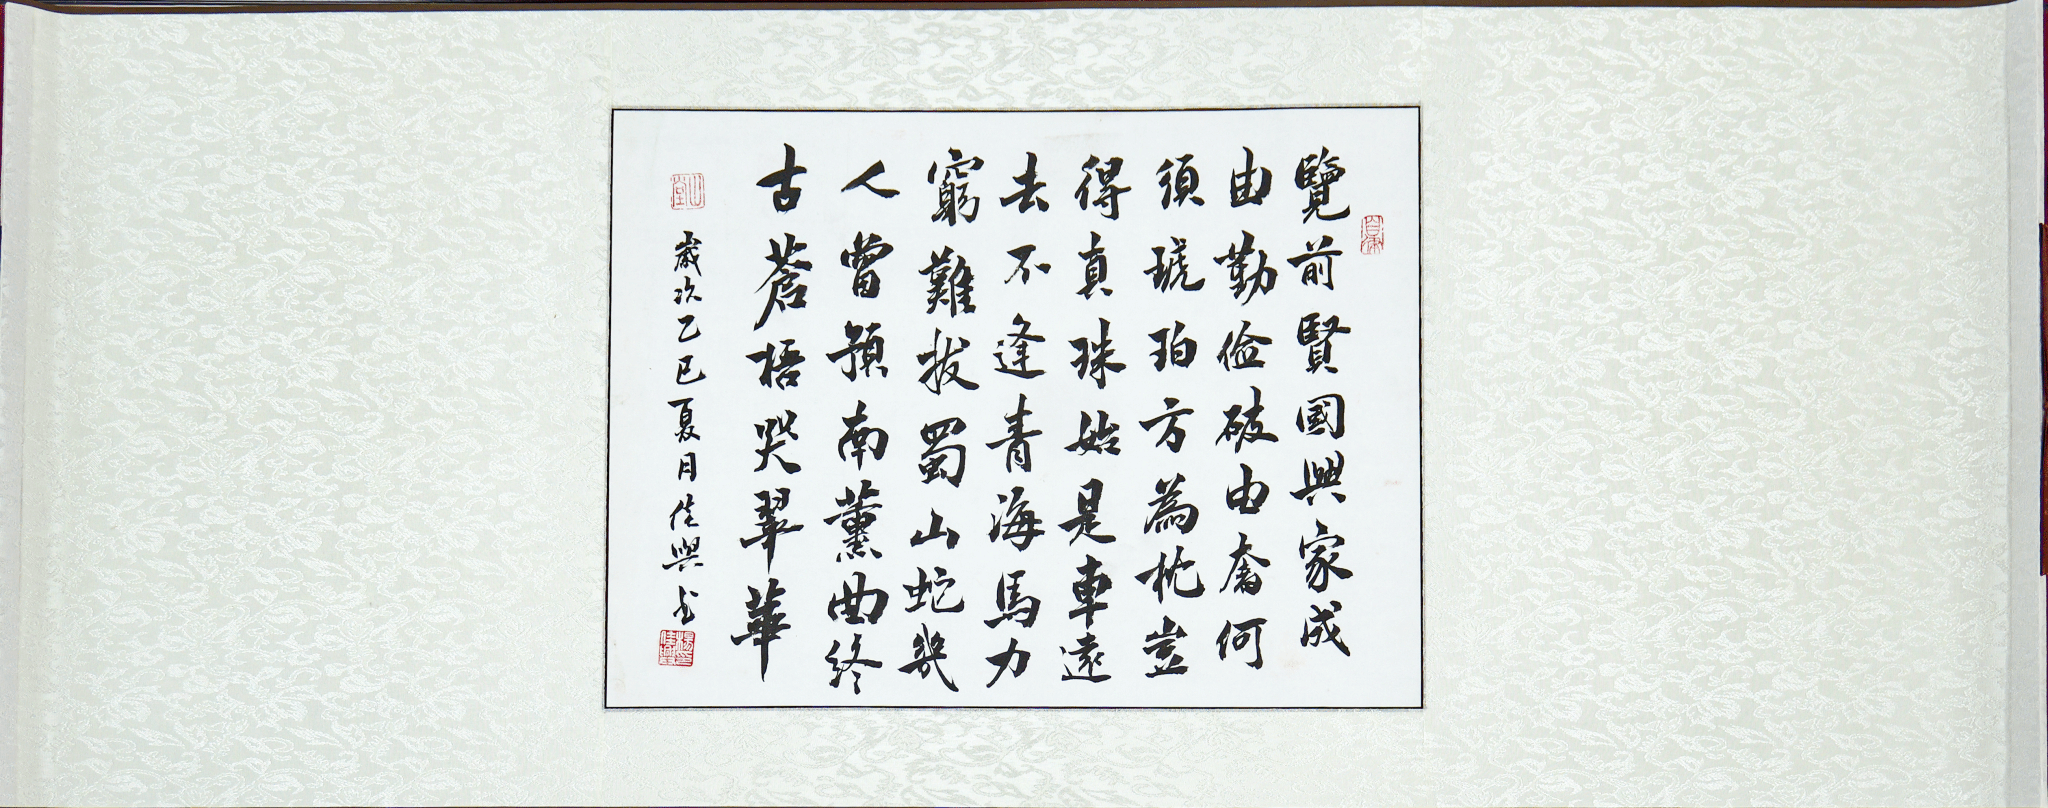 覽前賢國興家成
由勤俭破由奢何
須琥珀方為枕豈
得真珠始是車遠
去不逢青海馬力
窮難拔蜀山蛇幾
人曾預南薰曲終
古蒼梧哭翠華
歲次乙巳夏月佳興书